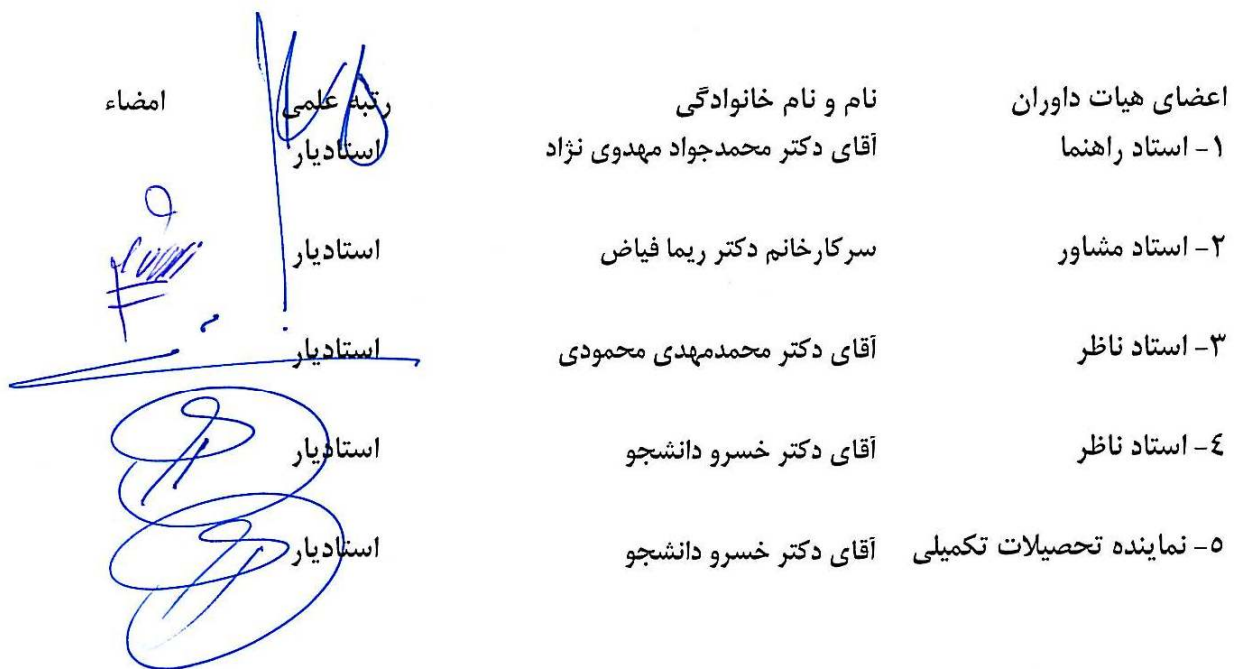 اعضای هیات داوران نام و نام خانوادگی رتبه علمی امضاء
۱- استاد راهنما آقای دکتر محمدجواد مهدوی نژاد استادیار
۲- استاد مشاور سرکارخانم دکتر ریما فیاض استادیار
۳- استاد ناظر آقای دکتر محمدمهدی محمودی استادیار
٤- استاد ناظر آقای دکتر خسرو دانشجو استادیار
٥- نماینده تحصیلات تکمیلی آقای دکتر خسرو دانشجو استادیار